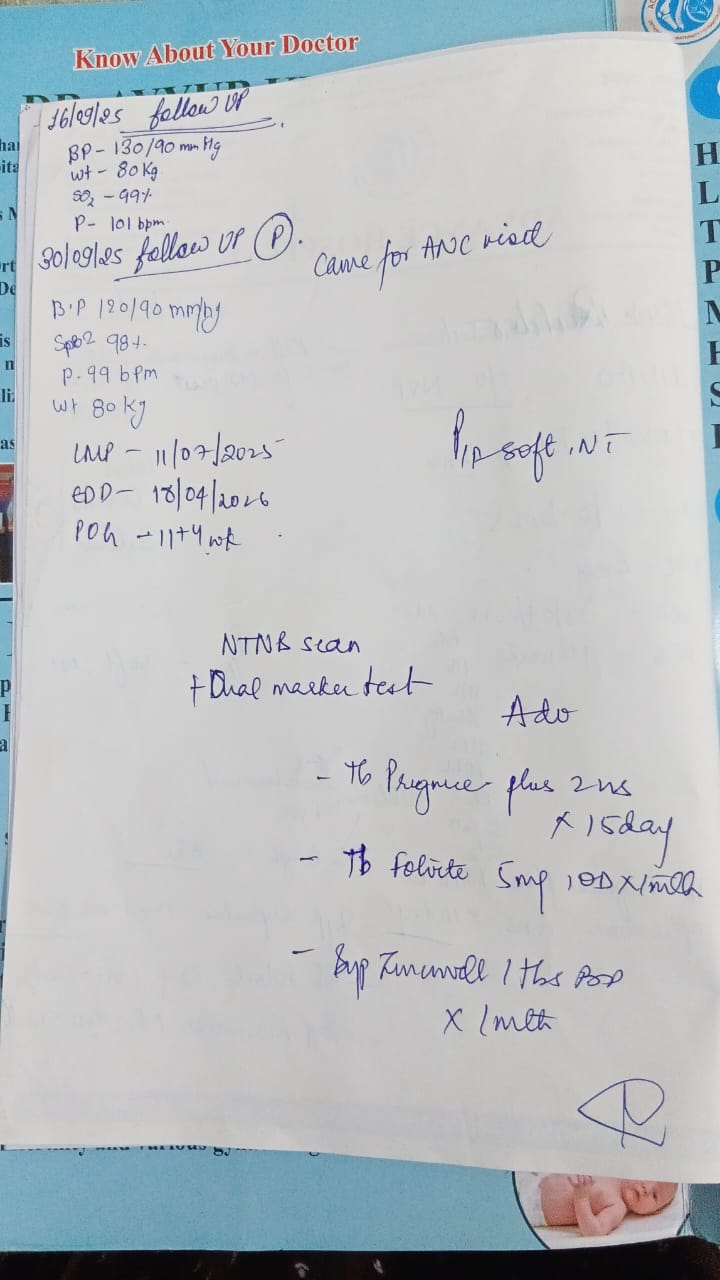 Know About Your Doctor
16/09/25 follow UP
BP - 130/90 mm Hg
wt - 80 Kg
SO2 - 99%
P- 101 bpm
30/09/25 follow UP (P).
Came for ANC visit
B.P 120/90 mm/hg
Spo2 98%
P. 99 bpm
wt 80 kg
LMP - 11/07/2025
EDD - 18/04/2026
POG - 11+4 wk
P/A soft, NT
NTNB scan
+ Dual marker test
Adv
- Tb plus 2 ns
x 15day
- Tb Folvite 5mg 1 OD x 1 mth
- Syp 1 tbs
x 1 mth
H
L
T
P